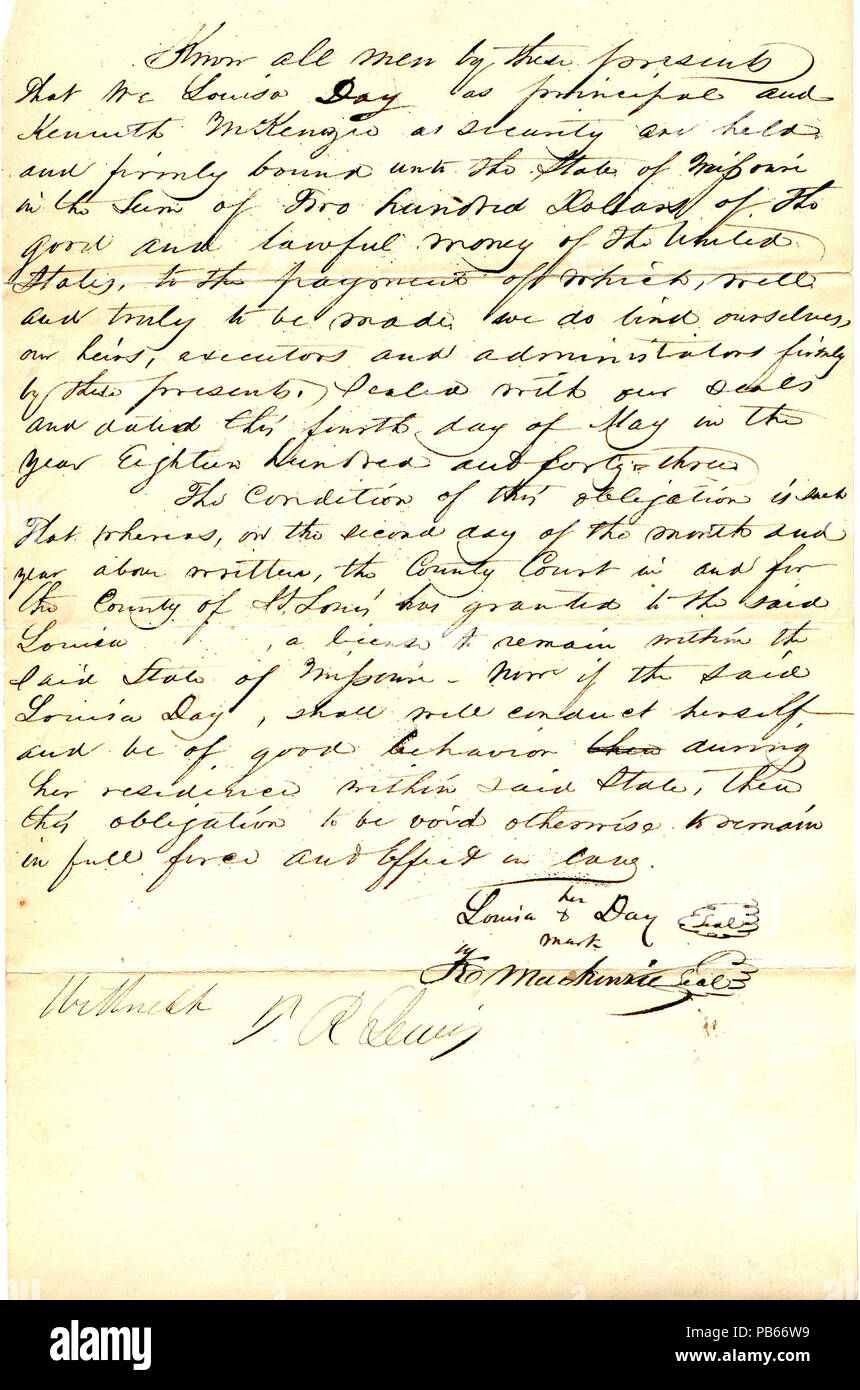 Know all men by these presents
That We Louisa Day as principal and
Kenneth McKenzie as security are held
and firmly bound unto the State of Missouri
in the Sum of Two hundred Dollars of the
good and lawful money of the United
States, to the payment of which, well
and truly to be made we do bind ourselves,
our heirs, executors and administrators firmly
by these presents. Sealed with our seals
and dated this fourth day of May in the
year Eighteen hundred and forty-three
The Condition of this obligation is such
That whereas, on the second day of the month and
year above written, the County Court in and for
the County of St. Louis has granted to the said
Louisa , a license to remain within the
said State of Missouri - Now if the said
Louisa Day, shall well conduct herself
and be of good behavior then during
her residence within said State, then
this obligation to be void otherwise to remain
in full force and Effect in law.
her
Louisa x Day Seal
mark
by
K MacKenzie Seal
Witness R Lewis
alamy
Image ID: PB66W9
www.alamy.com